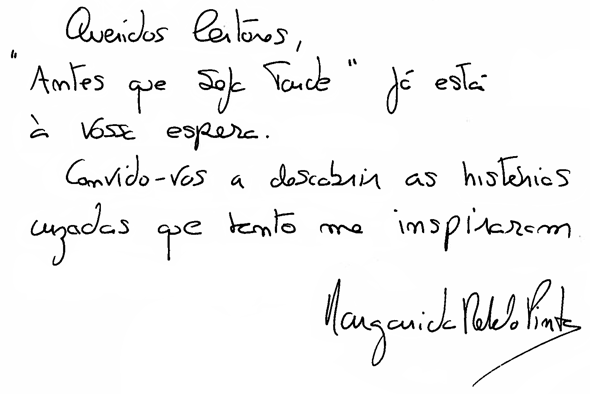 Queridos leitores,
"Antes que Seja Tarde" já está
à vossa espera.
Convido-vos a descobrir as histórias
cruzadas que tanto me inspiraram
Margarida Rebelo Pinto